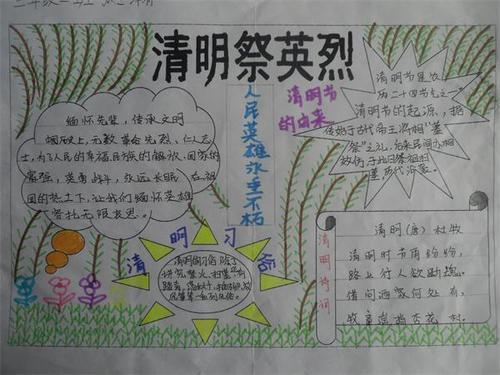 清明祭英烈
缅怀先辈,传承文明
烟硕上,无数革命先烈、仁人志
士,为了人民的幸福民族的解放、国家的
富强,英勇战斗,永远长眠在祖
国的热土下,让我们缅怀英雄
寄托无限哀思。
人民英雄永垂不朽
清明节
的由来
清明节是农
历二十四节气之一
清明节的起源,据
传始于古代帝王将相"墓
祭"之礼,后来民间亦相
仿效,于此日祭祖扫
墓,历代沿袭
清明习俗
清明的习俗除了
讲究禁火、扫墓,还有
踏青、荡秋千、
风筝等一系列风俗。
清明诗词
清明(唐)杜牧
清明时节雨纷纷,
路上行人欲断魂。
借问酒家何处有,
牧童遥指杏花村。